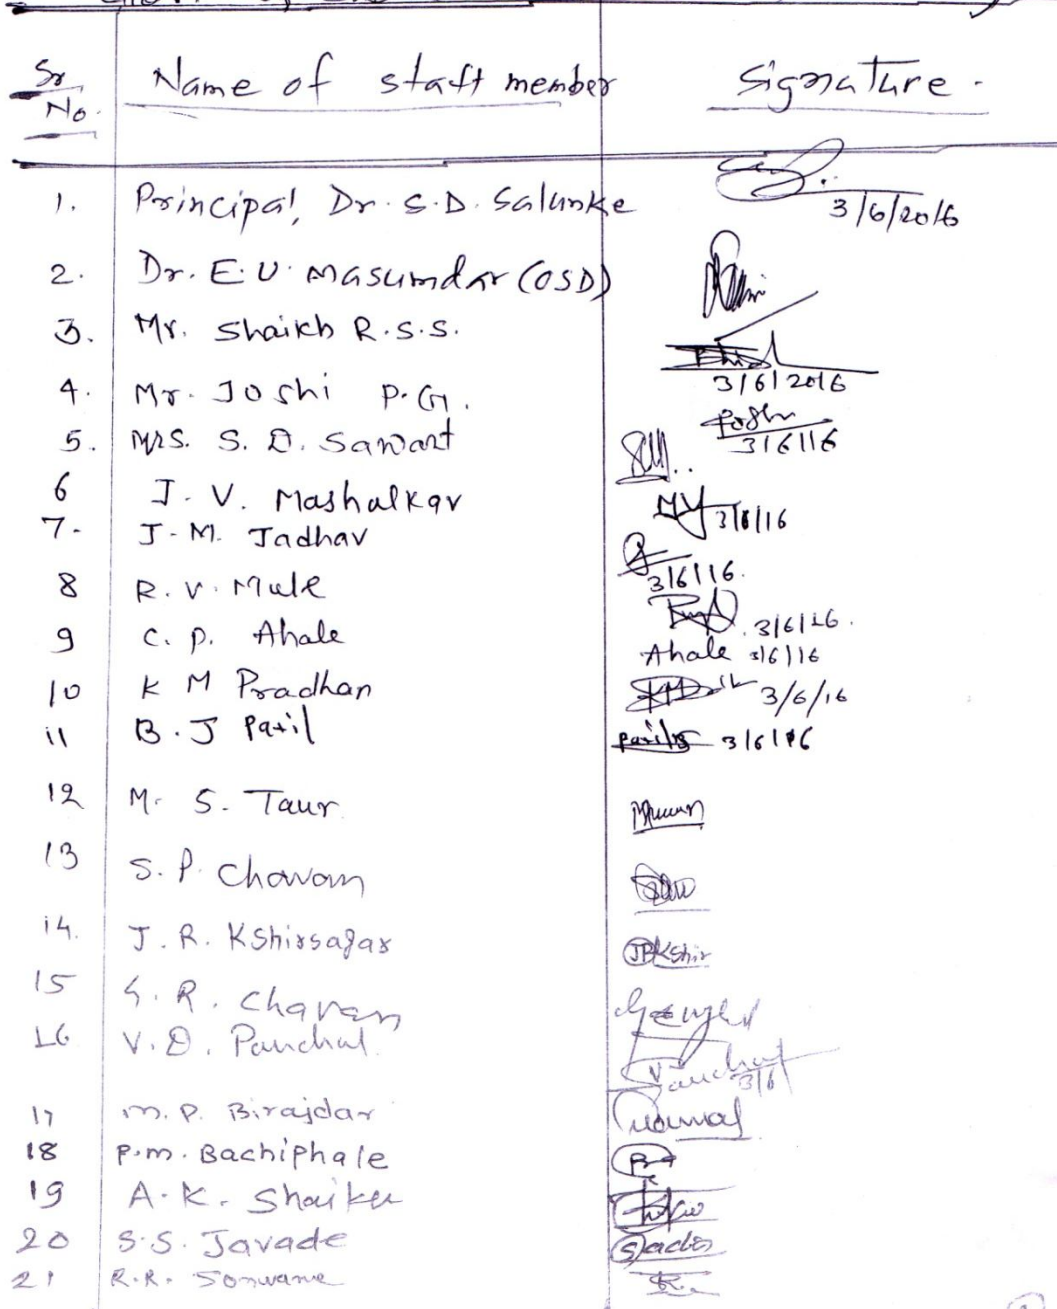 Sr No. Name of staff member Signature -
1. Principal, Dr. S.D. Salunke 3/6/2016
2. Dr. E.U. Masumdar (OSD)
3. Mr. Shaikh R.S.S. 3/6/2016
4. Mr. Joshi P.G. Joshi 3/6/16
5. Mrs. S. D. Sawant
6 J. V. Mashalkar 3/6/16
7. J.M. Jadhav 3/6/16.
8 R. V. Mule 3/6/16.
9 C. P. Ahale Ahale 3/6/16
10 K M Pradhan 3/6/16
11 B. J Patil 3/6/16
12 M. S. Taur
13 S. P. Chavan
14. J. R. Kshirsagar JRKshir
15 G. R. Chavan
16 V. D. Panchal Panchal 3/6
17 M. P. Birajdar
18 P.M. Bachiphale
19 A. K. Shaikh
20 S.S. Javade
21 R.R. Sonwane